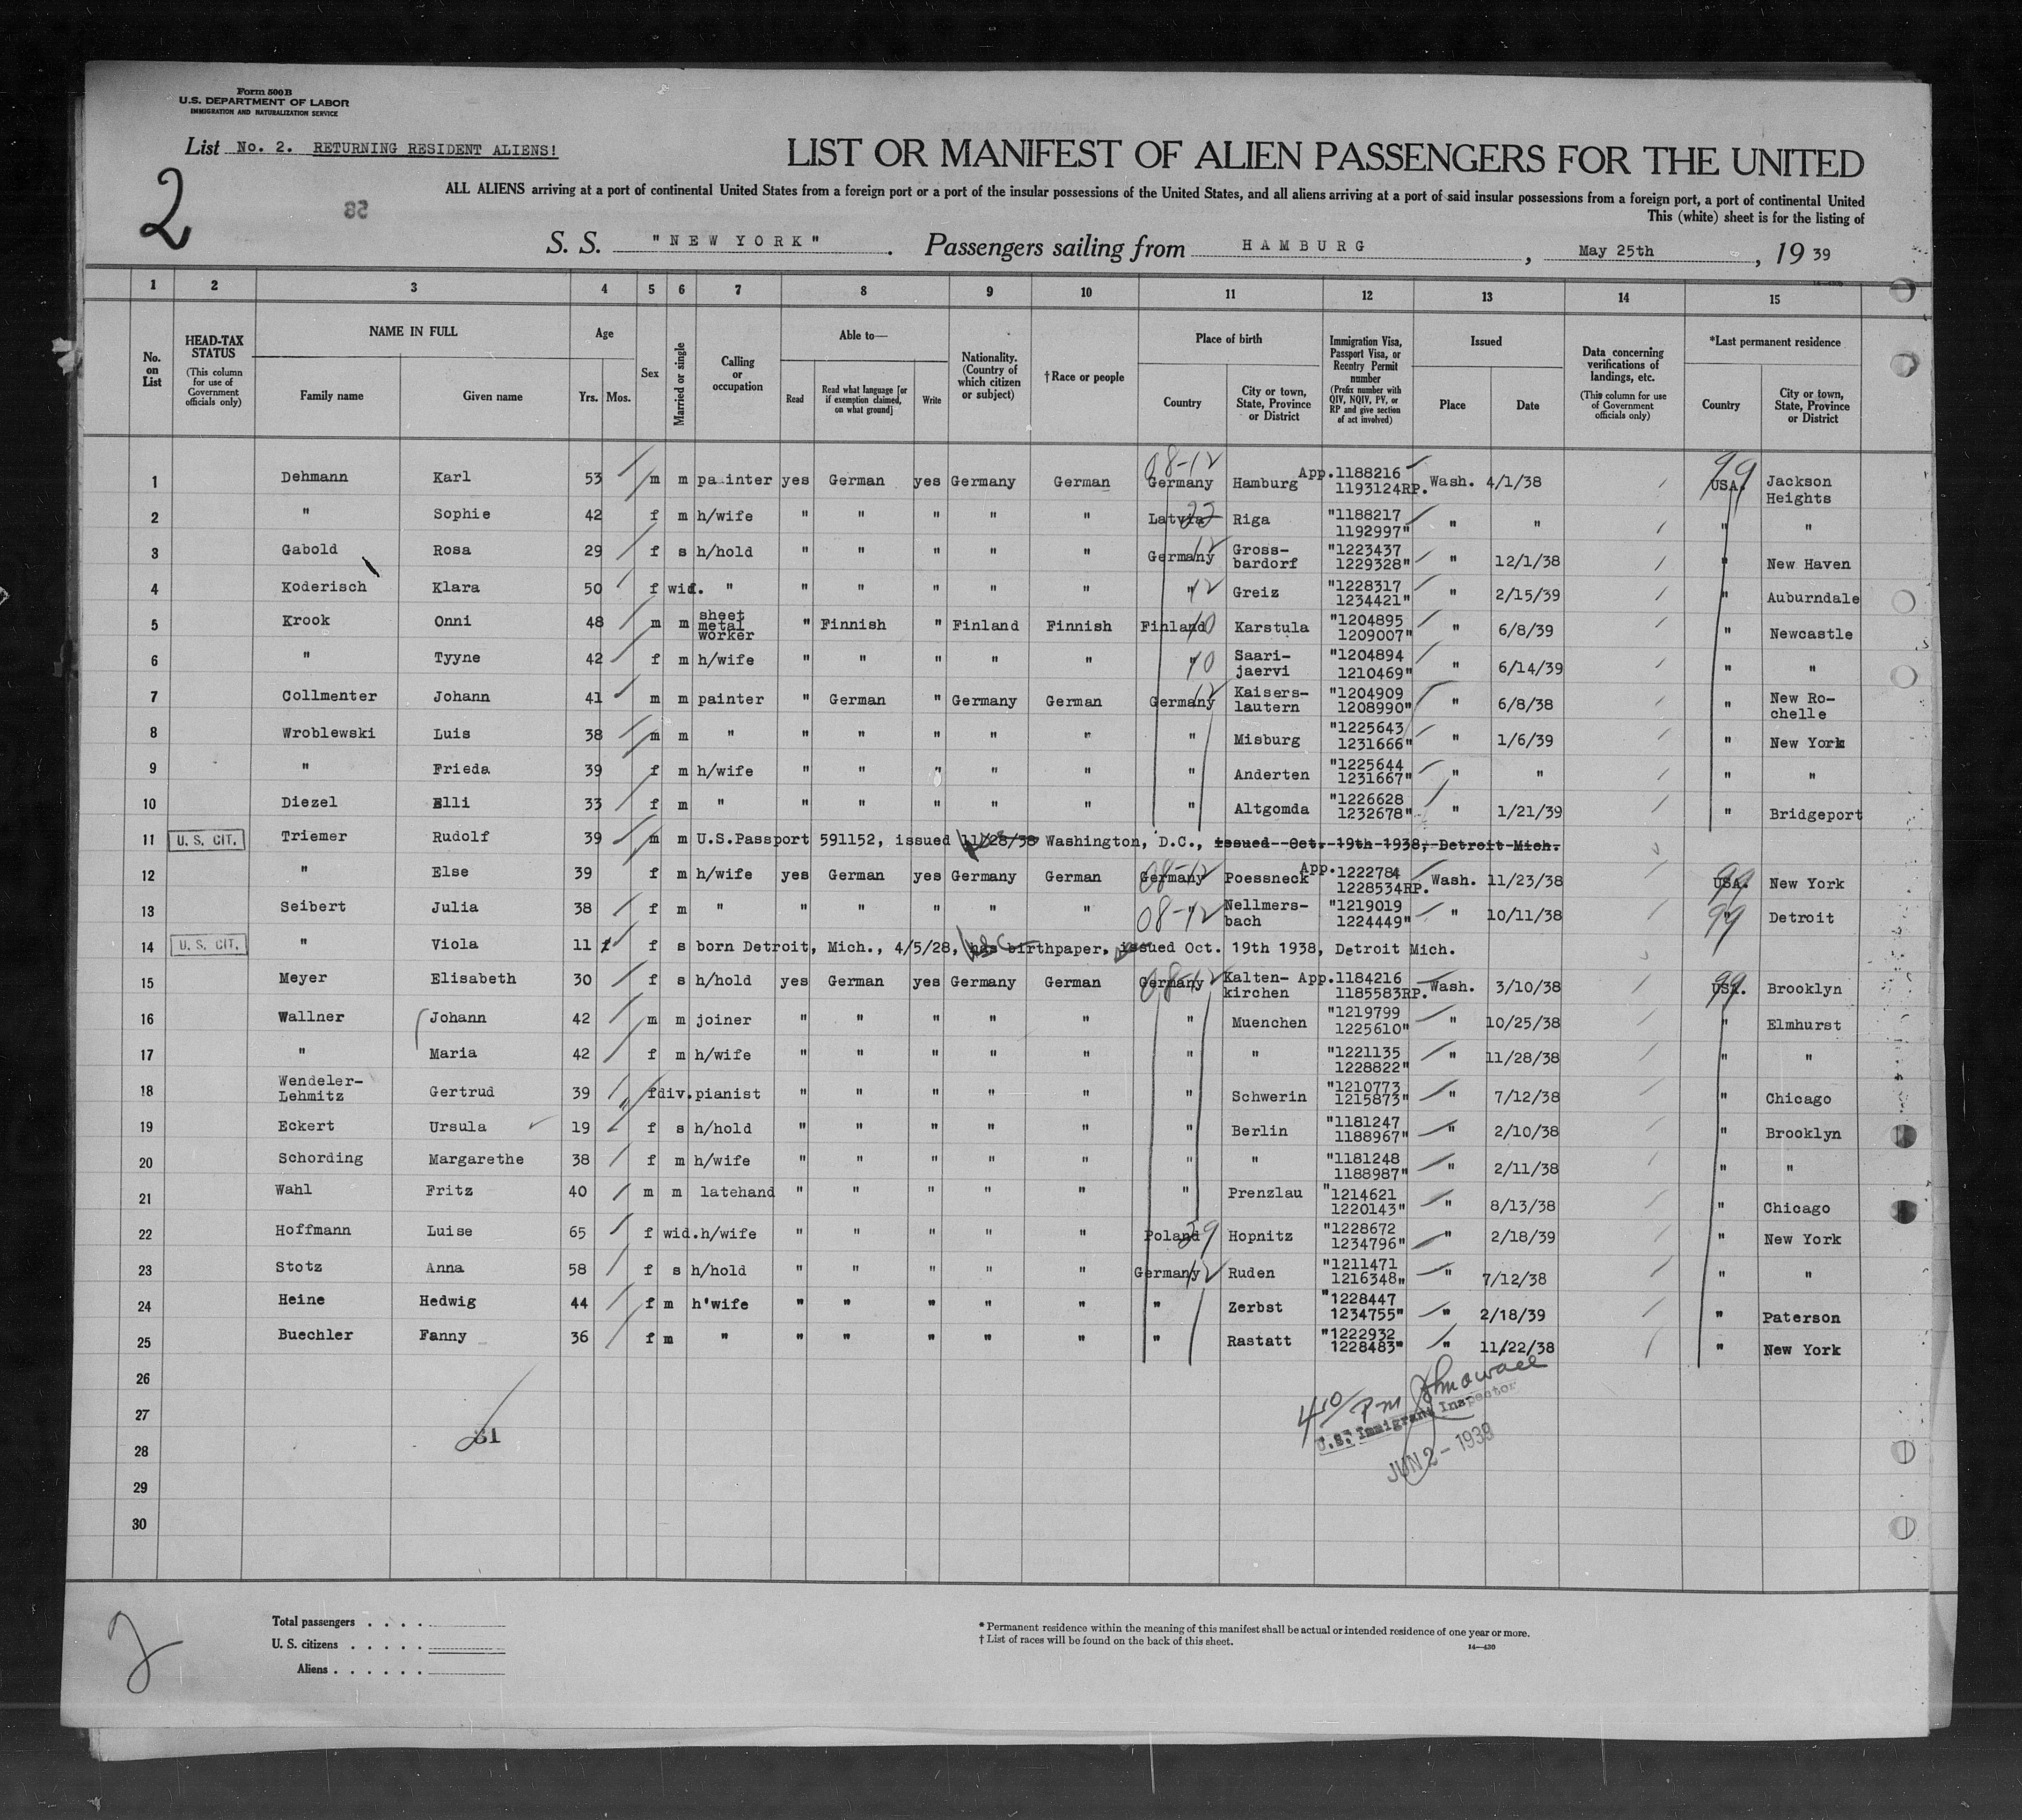 Form 500 B
U.S. DEPARTMENT OF LABOR
IMMIGRATION AND NATURALIZATION SERVICE
List No. 2. RETURNING RESIDENT ALIENS!
2
58
LIST OR MANIFEST OF ALIEN PASSENGERS FOR THE UNITED
ALL ALIENS arriving at a port of continental United States from a foreign port or a port of the insular possessions of the United States, and all aliens arriving at a port of said insular possessions from a foreign port, a port of continental United
This (white) sheet is for the listing of
S. S. "NEW YORK". Passengers sailing from HAMBURG, May 25th, 1939
1 2 3 4 5 6 7 8 9 10 11 12 13 14 15
No. on List
HEAD-TAX STATUS (This column for use of Government officials only)
NAME IN FULL Family name Given name
Age Yrs. Mos.
Sex
Married or single
Calling or occupation
Able to— Read Read what language [or if exemption claimed, on what ground] Write
Nationality. (Country of which citizen or subject)
†Race or people
Place of birth Country City or town, State, Province or District
Immigration Visa, Passport Visa, or Reentry Permit number (Prefix number with QIV, NQIV, PV, or RP and give section of act involved)
Issued Place Date
Data concerning verifications of landings, etc. (This column for use of Government officials only)
*Last permanent residence Country City or town, State, Province or District
1 Dehmann Karl 53 m m painter yes German yes Germany German 08-12 Germany Hamburg App. 1188216 1193124RP. Wash. 4/1/38 99 USA. Jackson Heights
2 " Sophie 42 f m h/wife " " " " " Latvia 22 Riga "1188217 1192997" " " " "
3 Gabold Rosa 29 f s h/hold " " " " " Germany 12 Gross-bardorf "1223437 1229328" " 12/1/38 " New Haven
4 Koderisch Klara 50 f wid. " " " " " " " 12 Greiz "1228317 1234421" " 2/15/39 " Auburndale
5 Krook Onni 48 m m sheet metal worker " Finnish " Finland Finnish Finland 10 Karstula "1204895 1209007" " 6/8/39 " Newcastle
6 " Tyyne 42 f m h/wife " " " " " " 10 Saari-jaervi "1204894 1210469" " 6/14/39 " "
7 Collmenter Johann 41 m m painter " German " Germany German Germany 12 Kaisers-lautern "1204909 1208990" " 6/8/38 " New Ro-chelle
8 Wroblewski Luis 38 m m " " " " " " " Misburg "1225643 1231666" " 1/6/39 " New York
9 " Frieda 39 f m h/wife " " " " " " Anderten "1225644 1231667" " " " "
10 Diezel Elli 33 f m " " " " " " " Altgomda "1226628 1232678" " 1/21/39 " Bridgeport
11 U. S. CIT. Triemer Rudolf 39 m m U.S.Passport 591152, issued 11/28/38 Washington, D.C., issued Oct. 19th 1938, Detroit Mich.
12 " Else 39 f m h/wife yes German yes Germany German 08-12 Germany Poessneck App. 1222784 1228534RP. Wash. 11/23/38 99 USA. New York
13 Seibert Julia 38 f m " " " " " " 08-12 " Nellmers-bach "1219019 1224449" " 10/11/38 99 " Detroit
14 U. S. CIT. " Viola 11 f s born Detroit, Mich., 4/5/28, has birthpaper, issued Oct. 19th 1938, Detroit Mich.
15 Meyer Elisabeth 30 f s h/hold yes German yes Germany German 08-12 Germany Kalten-kirchen App. 1184216 1185583RP. Wash. 3/10/38 99 USA. Brooklyn
16 Wallner Johann 42 m m joiner " " " " " " Muenchen "1219799 1225610" " 10/25/38 " Elmhurst
17 " Maria 42 f m h/wife " " " " " " " "1221135 1228822" " 11/28/38 " "
18 Wendeler-Lehmitz Gertrud 39 f div. pianist " " " " " " Schwerin "1210773 1215873" " 7/12/38 " Chicago
19 Eckert Ursula 19 f s h/hold " " " " " " Berlin "1181247 1188967" " 2/10/38 " Brooklyn
20 Schording Margarethe 38 f m h/wife " " " " " " " "1181248 1188987" " 2/11/38 " "
21 Wahl Fritz 40 m m latehand " " " " " " Prenzlau "1214621 1220143" " 8/13/38 " Chicago
22 Hoffmann Luise 65 f wid. h/wife " " " " " Poland 29 Hopnitz "1228672 1234796" " 2/18/39 " New York
23 Stotz Anna 58 f s h/hold " " " " " Germany 12 Ruden "1211471 1216348" " 7/12/38 " "
24 Heine Hedwig 44 f m h'wife " " " " " " Zerbst "1228447 1234755" " 2/18/39 " Paterson
25 Buechler Fanny 36 f m " " " " " " " Rastatt "1222932 1228483" " 11/22/38 " New York
26
27
28
29
30
31
410/PM
U.S. Immigrant Inspector
JUN 2 - 1939
Total passengers . . . .
U. S. citizens . . . . .
Aliens . . . . . .
2
* Permanent residence within the meaning of this manifest shall be actual or intended residence of one year or more.
† List of races will be found on the back of this sheet.
14—430